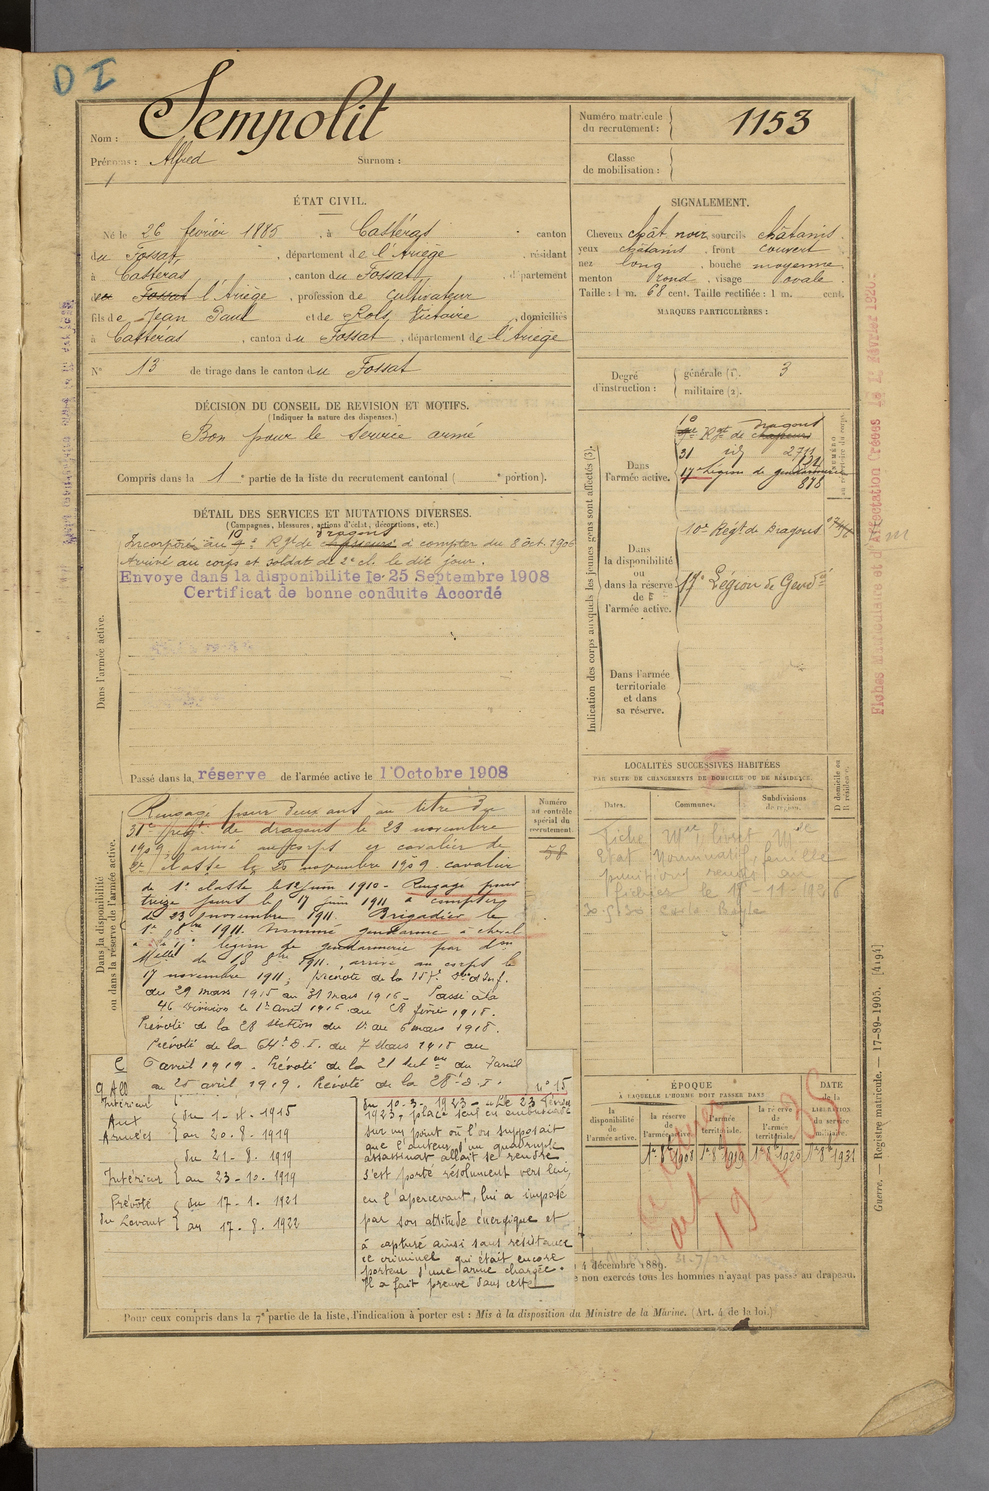 D I
Nom : Sempolit
Prénoms : Alfred Surnom :
Numéro matricule du recrutement : 1153
Classe de mobilisation :
ÉTAT CIVIL.
Né le 26 février 1885, à Castéras, canton
du Fossat, département de l'Ariège, résidant
à Castéras, canton du Fossat, département
de Fossat l'Ariège, profession de Cultivateur
fils de Jean Paul et de Rols Victoire, domiciliés
à Castéras, canton du Fossat, département de l'Ariège
N° 13 de tirage dans le canton du Fossat
SIGNALEMENT.
Cheveux chât. noir, sourcils châtains
yeux châtains, front couvert
nez long, bouche moyenne
menton rond, visage ovale
Taille : 1 m. 68 cent. Taille rectifiée : 1 m. cent.
MARQUES PARTICULIÈRES :
Degré d'instruction : générale (1). 3
militaire (2).
DÉCISION DU CONSEIL DE REVISION ET MOTIFS.
(Indiquer la nature des dispenses.)
Bon pour le service armé
Compris dans la 1e partie de la liste du recrutement cantonal ( e portion).
DÉTAIL DES SERVICES ET MUTATIONS DIVERSES.
(Campagnes, blessures, actions d'éclat, décorations, etc.)
Dans l'armée active.
Incorporé au 10e Rgt de dragons à compter du 8 oct. 1906
Arrivé au corps et soldat de 2e cl. le dit jour.
Envoye dans la disponibilite le 25 Septembre 1908
Certificat de bonne conduite Accordé
Passé dans la réserve de l'armée active le 1 Octobre 1908
Indication des corps auxquels les jeunes gens sont affectés (3).
Dans l'armée active.
10e Rgt de dragons
31 id 2711
17e Légion de gendarmerie
878
NUMÉRO au répertoire du corps.
Dans la disponibilité ou dans la réserve de l'armée active.
10e Regt de Dragons
17e Légion de Gendie
Dans l'armée territoriale et dans sa réserve.
Dans la disponibilité ou dans la réserve de l'armée active.
Numéro au contrôle spécial du recrutement
58
Rengagé pour deux ans au titre du
31e régt de dragons le 23 novembre
1909, arrivé au corps et cavalier de
2e classe le 25 novembre 1909. cavalier
de 1e classe le 12 juin 1910. Rengagé pour
treize jours le 17 juin 1911 à compter
du 23 novembre 1911. Brigadier le
1er 8bre 1911. nommé gendarme à cheval
à la 17e légion de gendarmerie par don
Melle du 18 8bre 1911. arrivé au corps le
17 novembre 1911; prévôté de la 157e Don d'Inf.
du 29 mars 1915 au 31 mars 1916. Passé à la
46 Division le 1er avril 1916 au 28 février 1918.
Prévôté de la 28 section du au 6 mars 1918.
Prévôté de la 64e D.I. du 7 Mars 1918 au
6 avril 1919. Prévôté de la 21 du 7 avril
au 25 avril 1919. Prévôté de la 28e D.I.
C
9 All
Intérieur
Aux Armées { du 1-8-1915
au 20.8.1919
Intérieur { du 21-8.1919
au 23-10-1919
Prévôté du Levant { du 17-1.1921
au 17.8.1922
n° 15
du 10-3-1923 - «Le 23 février
1923, placé seul en embuscade
sur un point où l'on supposait
que l'auteur d'un quadruple
assassinat allait se rendre
s'est porté résolument vers lui,
en l'apercevant, lui a imposé
par son attitude énergique et
a capturé ainsi sans résistance
ce criminel qui était encore
porteur d'une arme chargée.
Il a fait preuve dans cette
LOCALITÉS SUCCESSIVES HABITÉES
PAR SUITE DE CHANGEMENTS DE DOMICILE OU DE RÉSIDENCE.
Dates. Communes. Subdivisions de région. D domicile ou R résidence.
Fiche Mle, livret Mle
Etat Nominatif, feuille
punitions remis au
fichier le 18-11-1926
30-5-30 Carla Bayle
ÉPOQUE
À LAQUELLE L'HOMME DOIT PASSER DANS
la disponibilité de l'armée active.
la réserve de l'armée active.
l'armée territoriale.
la réserve de l'armée territoriale.
DATE de la LIBÉRATION du service militaire.
1er 8bre 1908 1er 8bre 1919 1er 8bre 1925 1er 8bre 1931
4 décembre 1889.
non exercés tous les hommes n'ayant pas passé au drapeau.
Pour ceux compris dans la 7e partie de la liste, l'indication à porter est : Mis à la disposition du Ministre de la Marine. (Art. 4 de la loi.)
Guerre. — Registre matricule. — 17-89-1905. [4194]